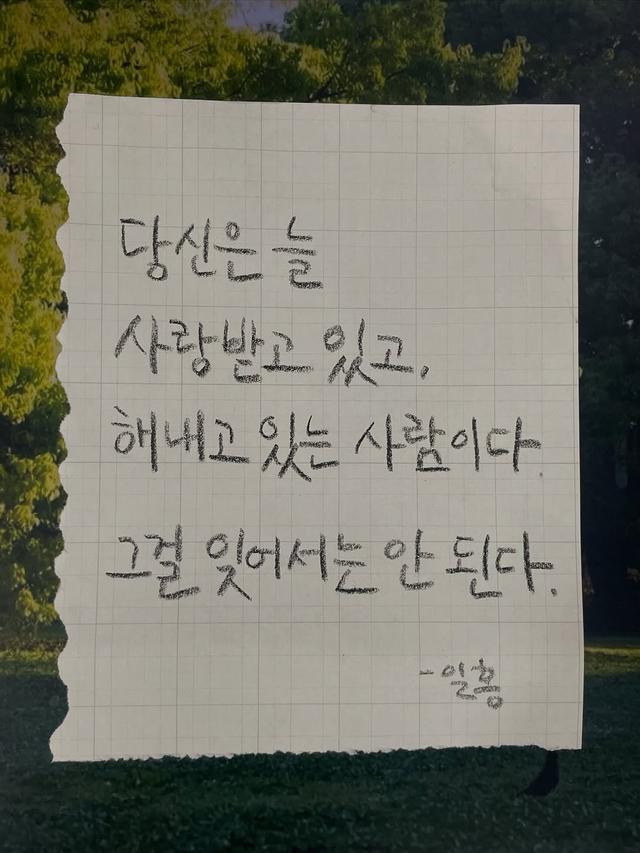 당신은 늘
사랑받고 있고,
해내고 있는 사람이다.
그걸 잊어서는 안 된다.
-일홍